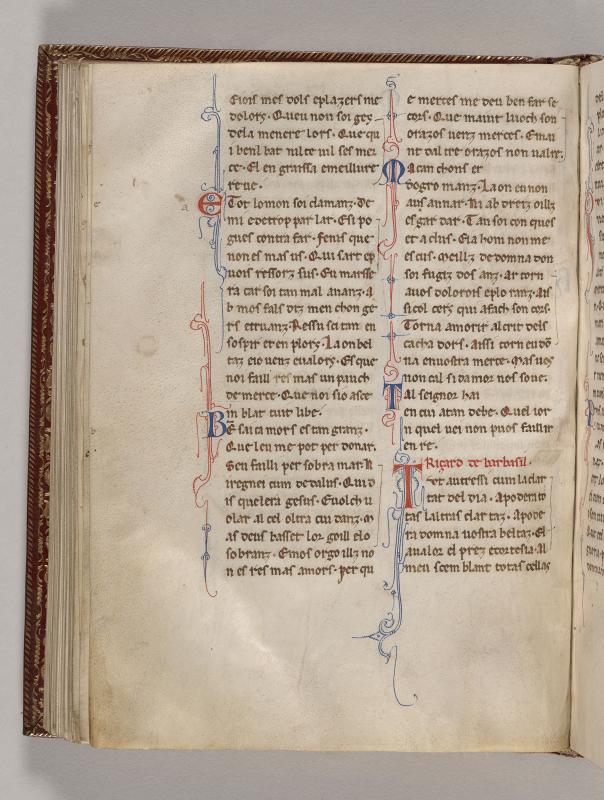 Giois mes dols eplazers me
dolors. Queu non soi ges
dela menere lors. Que qui
i ben l bat nil te nil ses mer
ce. El en graissa emeillure
reue.
E Tot lomon soi clamanz. De
mi edetrop par lar. Esi po
gues contra far. fenis que
non es mas us. Qui sart ep
uois ressorz sus. Eu marsse
ra car soi tan mal ananz. A
b mos fals diz men chon ge
rs etruanz. Ressusitan en
sospir et en plors. La on bel
taz eiouenz eualors. Es que
noi failli res mas un pauch
de merce. Que non sio asse
in blat tuit li be.
Be sauta mors es tan granz.
Que leu me pot per donar.
Seu failli per sobra mar. N
iregnei cum dedalus. Qui d
is quel era gesus. Euolch u
olar al cel oltra cui danz. M
as deus baisset lor goill elo
sobranz. E mos orgoillz no
n es res mas amors. per qu
e merces me deu ben far se
cors. Que maint luoch son
orazos uenz merces. E ma
int dal tre orazos non ualre.
Ma can chons er
dogro manz. La on eu non
aus annar. Ni ab dreiz oillz
esgar dar. Tan soi con ques
et a clus. Eia hom non me
escus. Meillz de domna don
soi fugiz dos anz. ar torn
auos doloros eplo ranz. Ais
si col cers qui afach son cors.
Torna morir al crit dels
cacha dors. Aissi torn eu do
na enuostra merce. Mas uos
non cal si damor nos soue.
Tal seignor hai
en cui atan debe. Quel ior
n quel uei non puos faillir
en re.
Riçard de barbasil.
Tot autressi cum la clar
tat del dia. Apodera to
tas laltras clar taz. Apode
ra domna uostra beltaz. El
aualor el prez ecortesia. Al
meu sem blant totas cellas